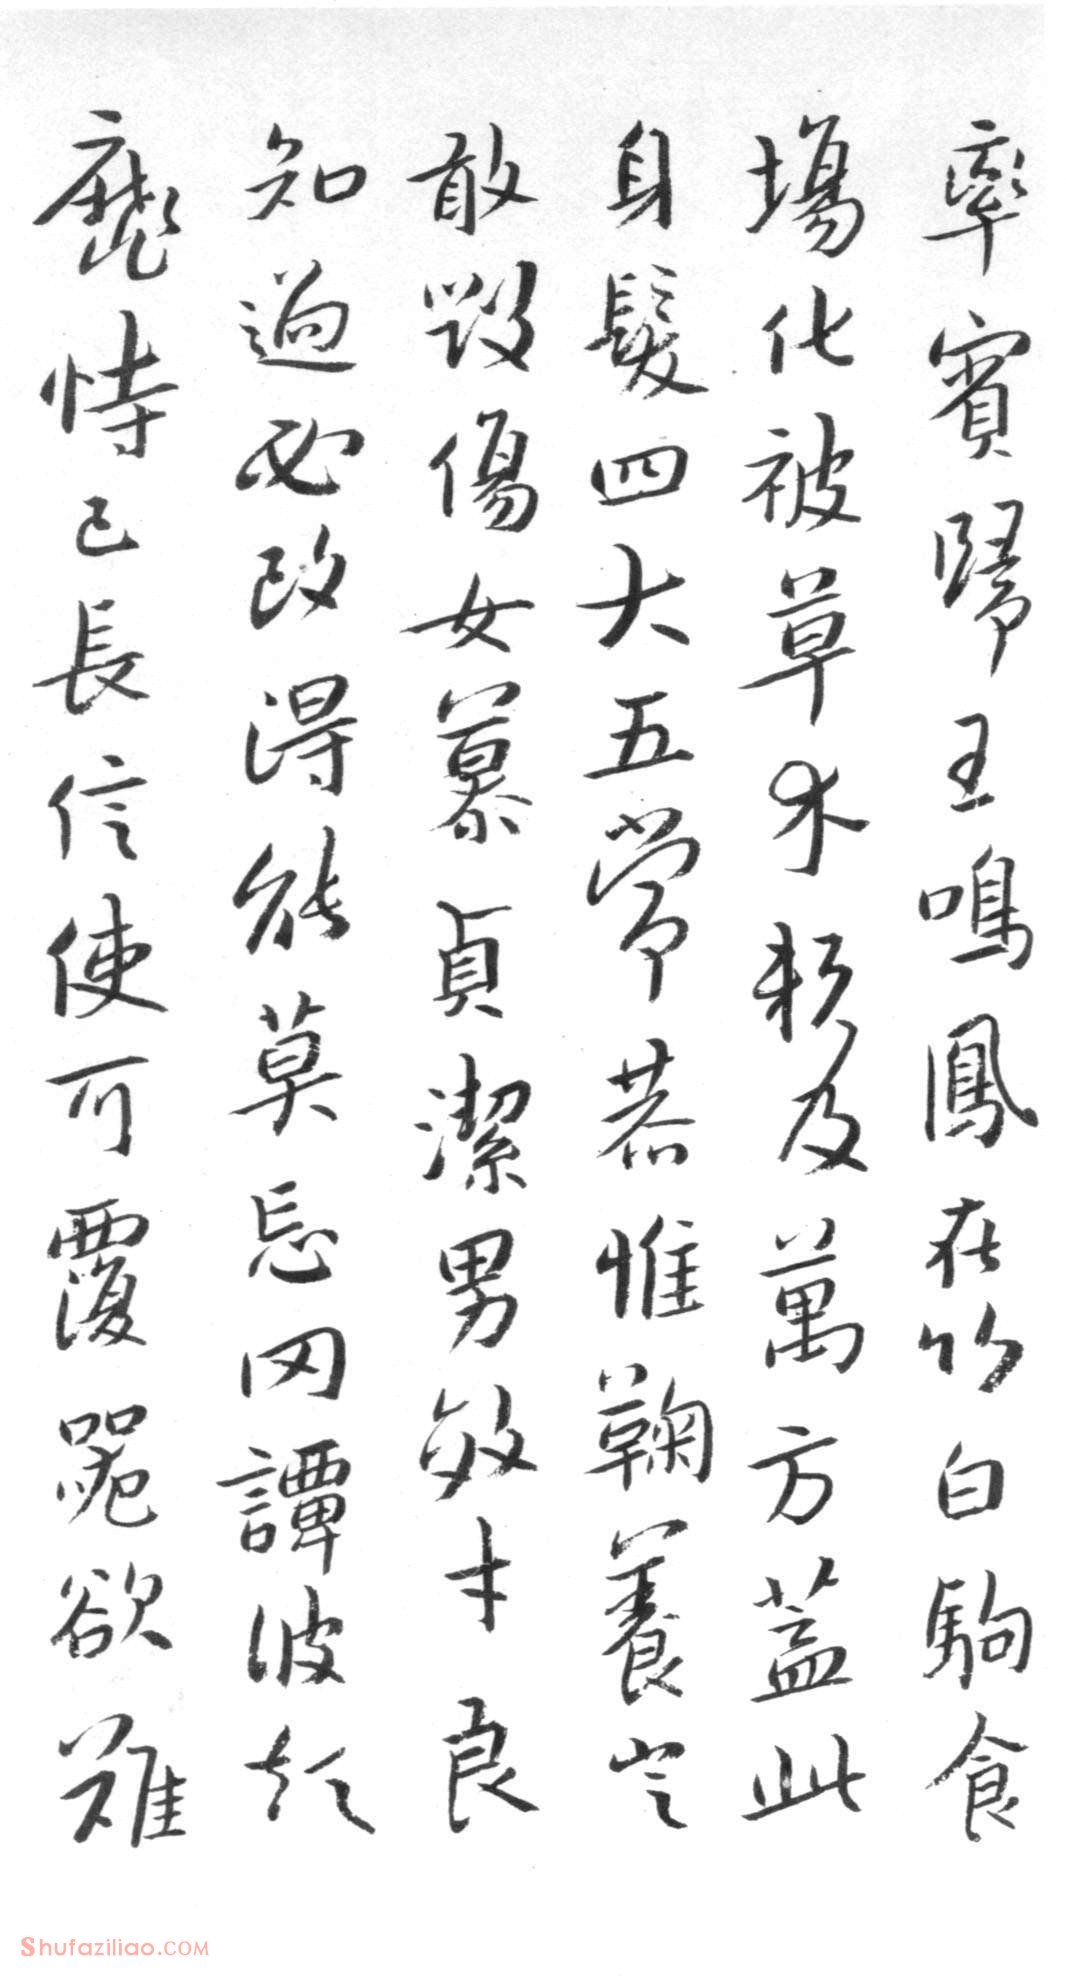 率賓歸王鳴鳳在竹白駒食
場化被草木賴及萬方蓋此
身髮四大五常恭惟鞠養豈
敢毀傷女慕貞潔男效才良
知過必改得能莫忘罔譚彼短
靡恃己長信使可覆器欲難
Shufaziliao.COM